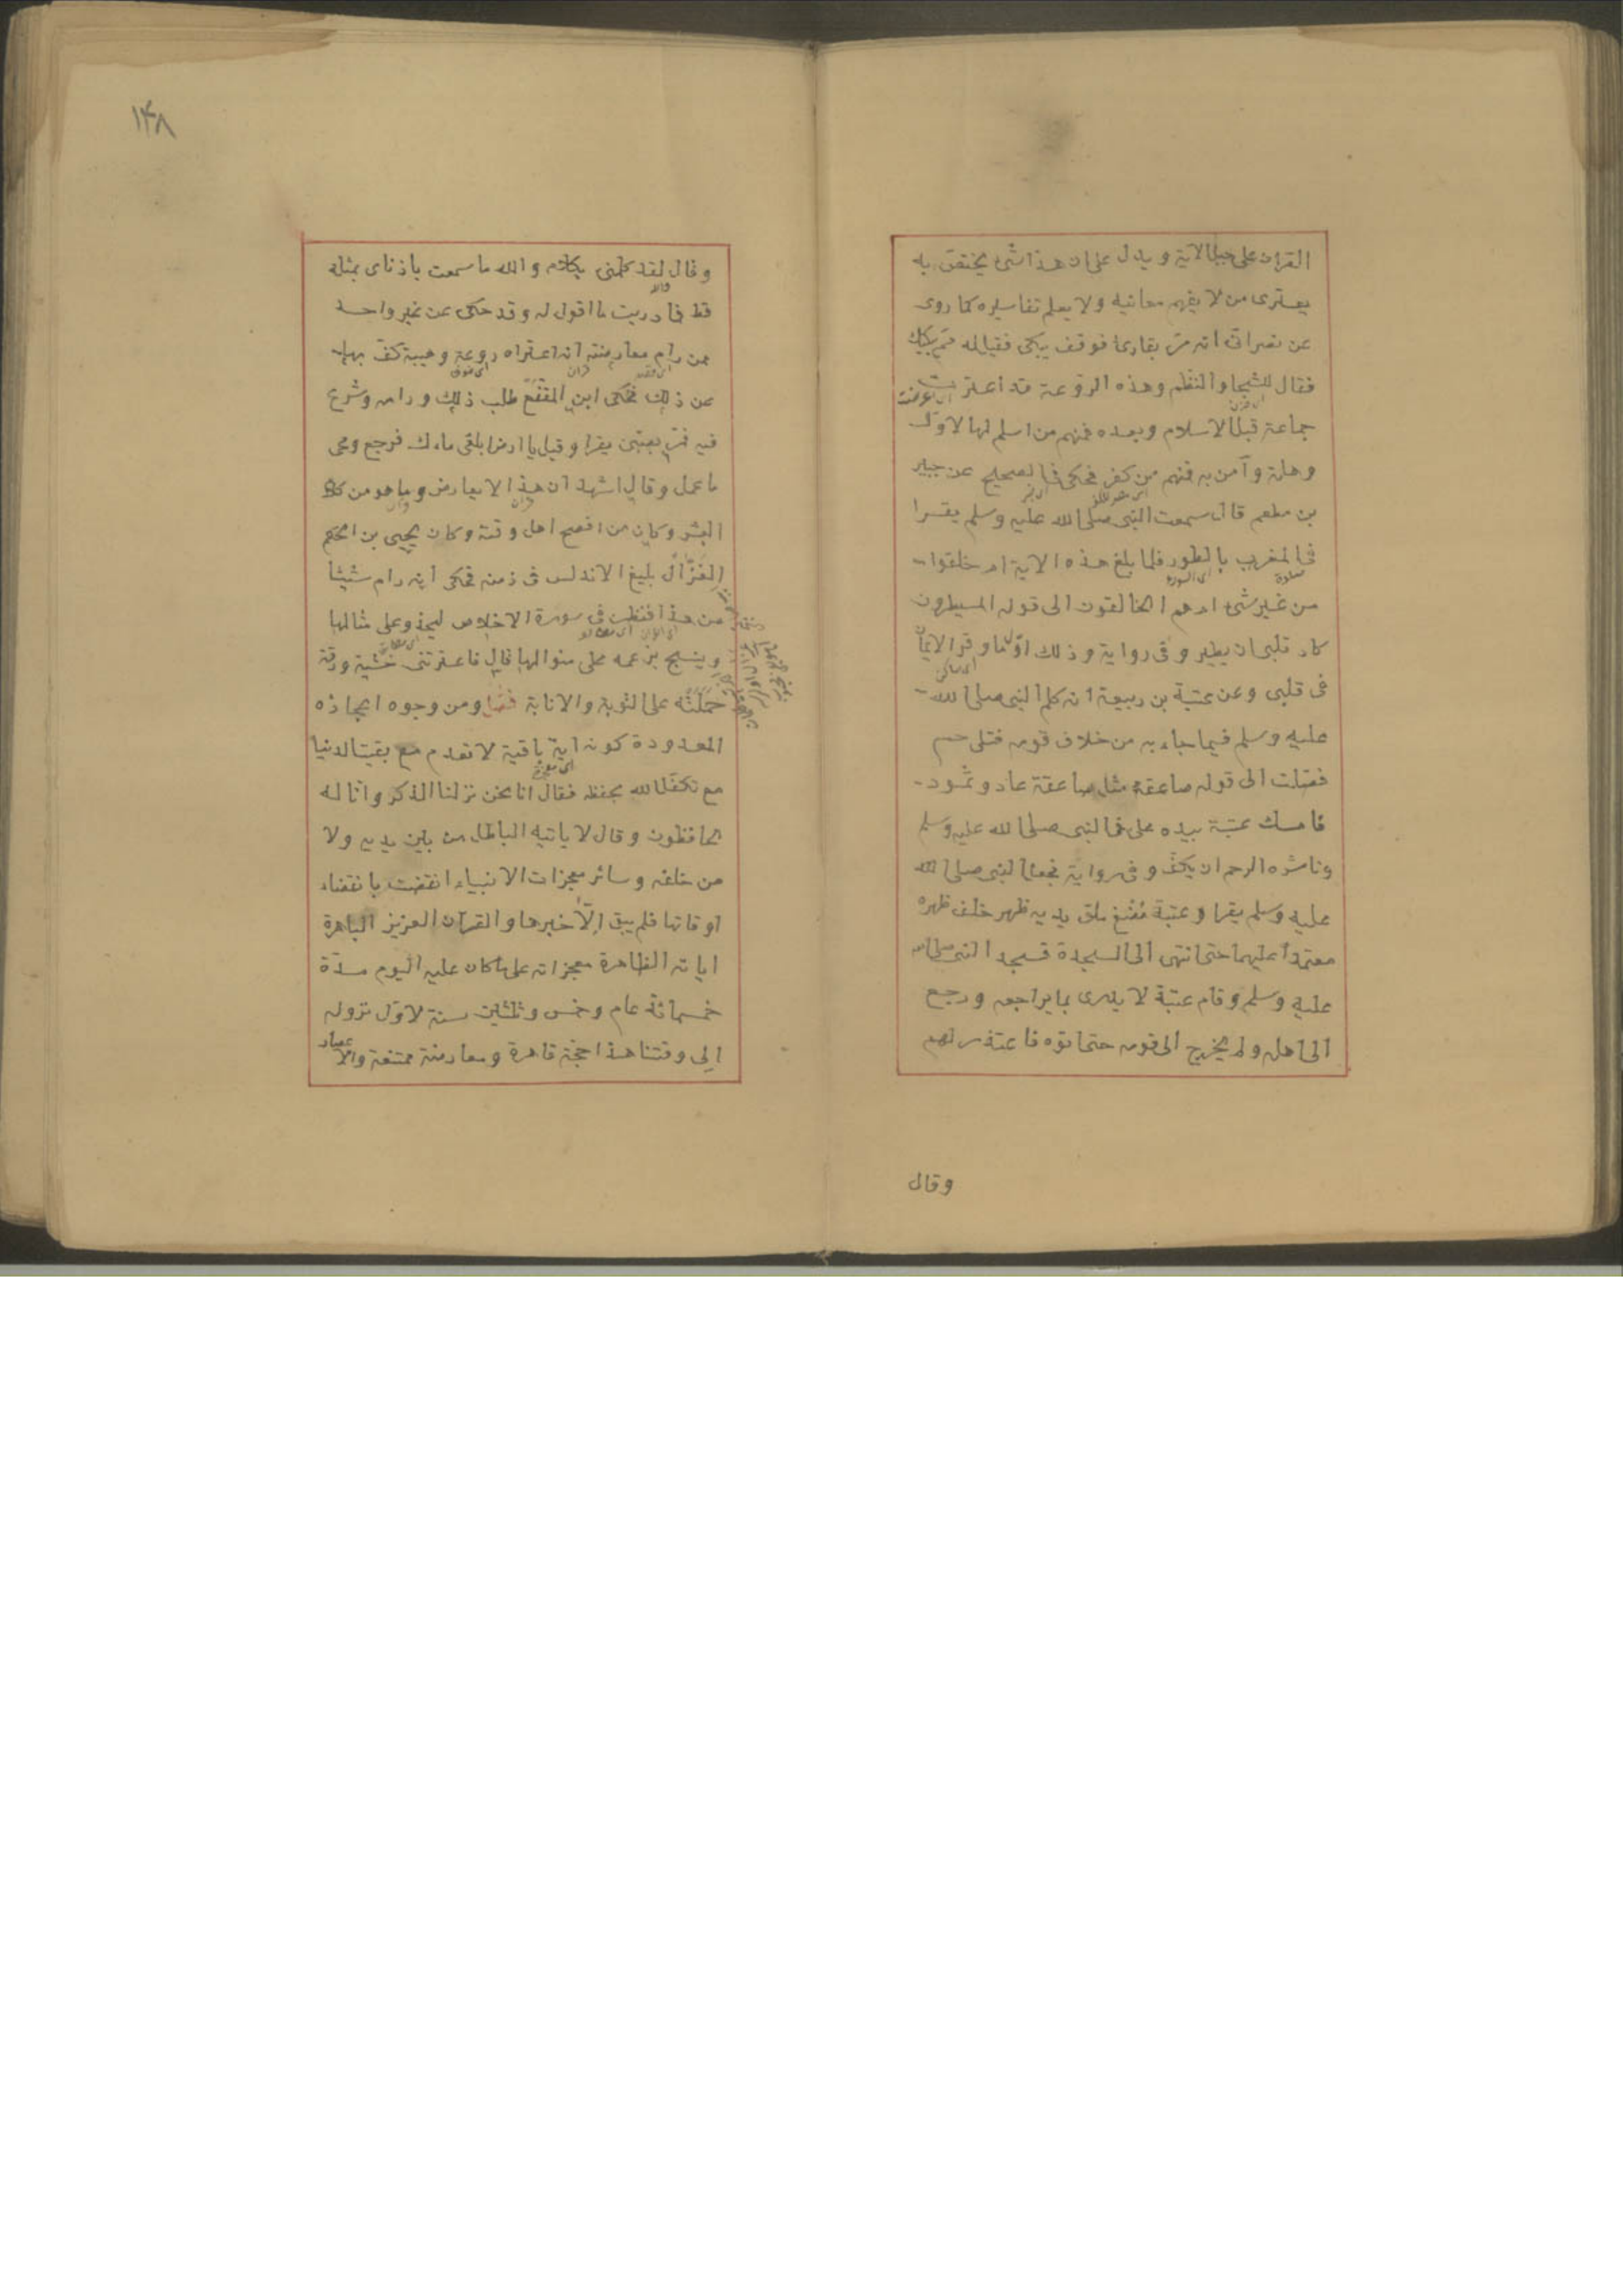 القران على جبل الاية ويدل على ان هذا شئ يختص به
يعترى من لا يفهم معانيه ولا يعلم تفاسيره كما روى
عن نصرانى انه مرّ بقارئ فوقف يبكى فقيل له مم بكيت
فقال للشجا والنظم وهذه الروعة قد اعترت
جماعة قبل الاسلام وبعده فمنهم من اسلم لها لاول
وهلة وآمن به ومنهم من كفر فحكى فى الصحيح عن جبير
بن مطعم قال سمعت النبى صلى الله عليه وسلم يقرا
فى المغرب بالطور فلما بلغ هذه الاية ام خلقوا
من غير شئ ام هم الخالقون الى قوله المسيطرون
كاد قلبى ان يطير وفى رواية وذلك اوّل ما وقر الايمان
فى قلبى وعن عتبة بن ربيعة انه كلم النبى صلى الله
عليه وسلم فيما جاء به من خلاف قومه فتلى حم
فصلت الى قوله صاعقة مثل صاعقة عاد وثمود
فامسك عتبة بيده على فم النبى صلى الله عليه وسلم
وناشده الرحم ان يكفّ وفى رواية فجعل النبى صلى الله
عليه وسلم يقرا وعتبة مُصْغ ملق يديه ظهر خلف ظهره
معتمدا عليهما حتى انتهى الى السجدة فسجد النبى صلى الله
عليه وسلم وقام عتبة لا يدرى بما يراجعه ورجع
الى اهله ولم يخرج الى قومه حتى اتوه فاعتذر لهم
وقال
۱۴۸
وقال لقد كلمنى بكلام والله ما سمعت باذناى بمثله
قط فما دريت ما اقول له وقد حكى عن غير واحد
ممن رام معارضته انه اعتراه روعة وهيبة كفّ بها
عن ذلك فحكى ابن المقفع طلب ذلك ورامه وشرع
فيه فمرّ بصبىّ يقرا وقيل يا ارض ابلعى ماءك فرجع ومحى
ما عمل وقال اشهد ان هذا لا يعارض وما هو من كلام
البشر وكان من افصح اهل وقته وكان يحيى بن الحكم
الغَزّال بليغ الاندلس فى زمنه فحكى انه رام شيئا
من هذا فنظر فى سورة الاخلاص ليحذو على مثالها
وينسج بزعمه على منوالها قال فاعترتنى خشية ورقة
حملتْه على التوبة والانابة فصل ومن وجوه اعجازه
المعدودة كونه اية باقية لا تعدم مع بقيت الدنيا
مع تكفّل الله بحفظه فقال انا نحن نزلنا الذكر وانا له
لحافظون وقال لا ياتيه الباطل من بين يديه ولا
من خلفه وسائر معجزات الانبياء انقضت بانقضاء
اوقاتها فلم يبق الّا خبرها والقران العزيز الباهرة
اياته الظاهرة معجزاته على ما كان عليه اليوم مدّة
خمسمائة عام وخمس وثلثين سنة لاوّل نزوله
الى وقتنا هذا حجّة قاهرة ومعارضته ممتنعة والاعصار